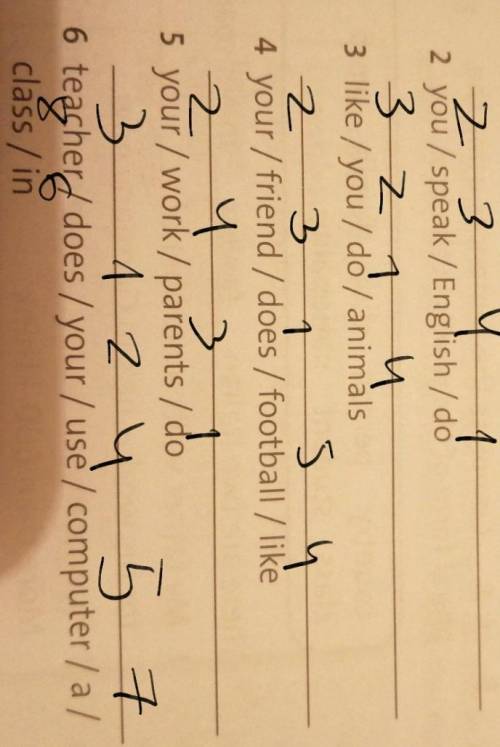 2 3 4 1
2 you / speak / English / do
3 2 1 4
3 like / you / do / animals
2 3 1 5 4
4 your / friend / does / football / like
2 4 3 1
5 your / work / parents / do
3 1 2 4 5 7
6 teacher / does / your / use / computer / a /
8 6
class / in